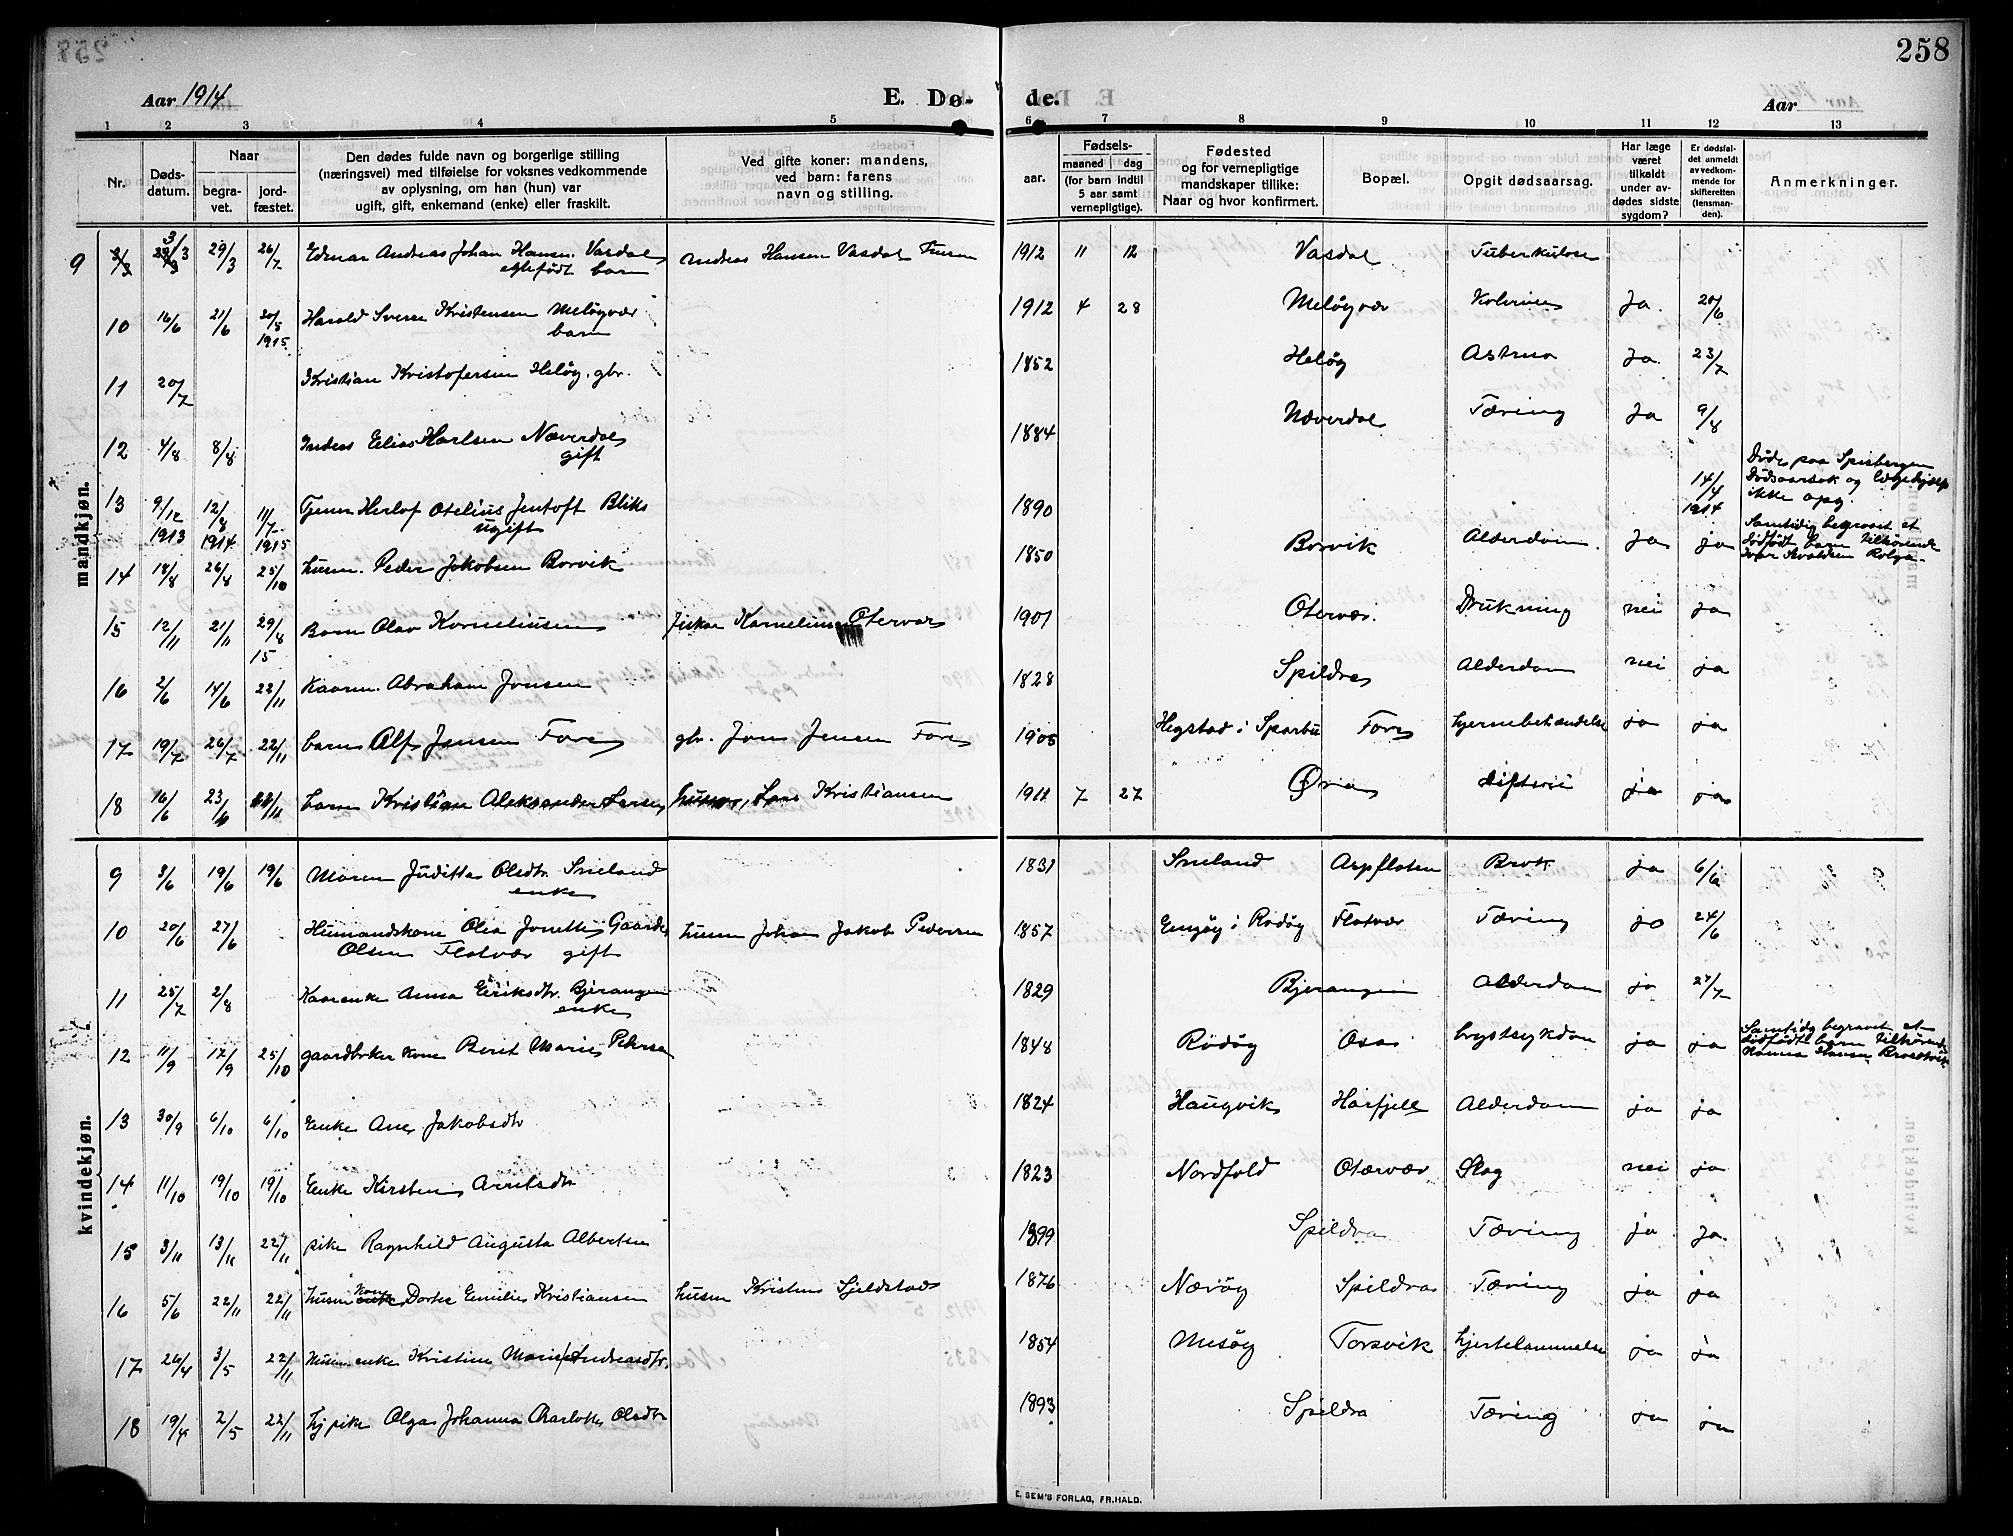 258
Aar 1914
E. Dø-
de.
Aar
1 2 3 4 5 6 7 8 9 10 11 12 13
Nr.
Døds-
datum.
Naar
begra-
vet.
jord-
fæstet.
Den dødes fulde navn og borgerlige stilling
(næringsvei) med tilføielse for voksnes vedkommende
av oplysning, om han (hun) var
ugift, gift, enkemand (enke) eller fraskilt.
Ved gifte koner: mandens,
ved barn: farens
navn og stilling.
Fødsels-
aar.
maaned
dag
(for barn indtil
5 aar samt
vernepligtige).
Fødested
og for vernepligtige
mandskaper tillike:
Naar og hvor konfirmert.
Bopæl.
Opgit dødsaarsag.
Har læge
været
tilkaldt
under av-
dødes sidste
sygdom?
Er dødsfal-
det anmeldt
av vedkom-
mende for
skifteretten
(lensman-
den).
Anmerkninger.
mandkjøn.
9 29/3 26/7 Edmar Andreas Johan Hansen Vasdal Andreas Hansen Vasdal 1912 11 12 Vasdal Tuberkulose
ektefødt barn
10 16/6 21/6 20/5 Harald Sverre Kristensen Meløyvær 1912 4 28 Meløyvær Ja. 20/6
1915 barn
11 20/7 Kristian Kristofersen Heløy, gbr. 1852 Heløy Astma Ja. 23/7
12 4/8 8/8 Elias Næverdal 1884 Næverdal Tæring Ja 9/8
gift
13 9/12 12/8 11/7 Tjener Herlof Otelius Jentoft Bliks 1890 14/4 Døde paa Spisbergen
1913 1914 1915 ugift 1914 Dødsaarsak og lægehjælp
ikke opg.
14 18/8 26/8 25/10 husm. Peder Jakobsen Borvik 1850 Borvik Alderdom. Ja ja Samtidig begravet et
dødfødt barn tilhørende
15 12/11 21/11 29/8 Barn Olav Korneliussen Fisker Kornelius Otervær 1901 Otervær. Drukning nei ja
15
16 2/6 14/6 22/11 Kaarm. Abraham Jonsen 1828 Spildra Alderdom nei ja
17 19/7 26/7 22/11 barn Alf Jensen Fore gbr. Jens Jensen Fore Hegstad i Sparbu Fore hjernebetændelse ja ja
18 16/6 23/6 22/11 barn Kristian Aleksander Larsen husm, Lars Kristiansen 1911 7 27 Ørnes difteri ja ja
kvindekjøn.
9 3/6 19/6 19/6 Maren Juditta Olsdtr. Smeland 1831 Smeland Arpfloten Brok ja 6/6
enke
10 20/6 27/6 Husmandskone Olea Jonette Gaarder husm Johan Jakob Pedersen 1857 i Rødøy Flatvær Tæring ja 24/6
Olsen Flatvær gift
11 25/7 2/8 Kaarenke Anna Eriksdtr. Bjerangen 1829 Bjerangen Alderdom ja 27/7
enke
12 11/9 17/9 25/10 gaardbruker kone Beret Marie Petersen 1848 Rødøy Osa brystsykdom ja ja Samtidig begravet et
dødfødt barn tilhørende
13 30/9 6/10 6/10 Enke Ane Jakobsdtr 1824 Haugvik Harfjell Alderdom ja ja
14 11/10 19/10 19/10 Enke Kirsten Arntsdtr 1823 Nordfold Otervær Slag nei ja
15 3/11 13/11 22/11 pike Ragnhild Augusta Albertsen 1899 Spildra Tæring ja Ja.
16 5/6 22/11 22/11 husm kone Dorte Emilie Kristiansen husm Kristen Sjeldstad 1876 Nærøy Spildra Tæring ja ja
17 26/4 3/5 22/11 Husm.enke Kristine Marie Andreasdtr. 1854 Mesøy Torsvik hjertelammelse ja ja
18 19/4 2/5 22/11 hj pike Olga Johanna Charlotte Olsdtr 1893 Spildra Tæring ja ja
E. SEM'S FORLAG, FR.HALD.